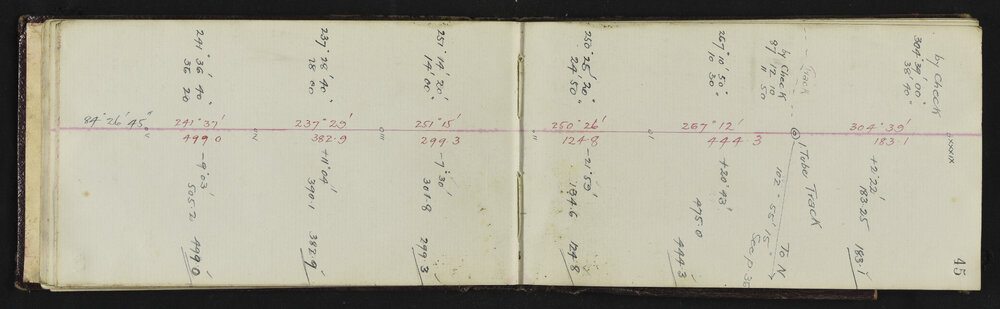 45
by Check
304° 39' 00"
38' 40"
0 XXXIX
304° 39'
183.1
+2° 22'
183.25
183.1
Track
by Check
87 12 10
" 11 50
1 Tobu Track
102° 55' 15"
To N
See p 36
267° 10' 50"
10 30"
267° 12'
444.3
+20° 43'
475.0
444.3
01
250° 25' 20"
24' 50"
250° 26'
124.8
-21° 53'
134.6
124.8
011
251° 14' 20"
14' 00"
251° 15'
299.3
-7° 30'
301.8
299.3
0111
237° 28' 40"
28 00
237° 29'
382.9
+11° 04'
390.1
382.9
241° 36' 40"
36 20
241° 37'
499.0
-9° 03'
505.2
499.0
84° 26' 45"